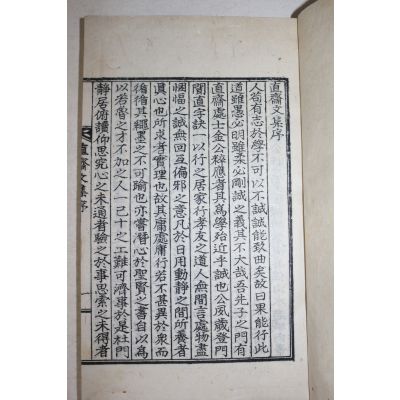 直齋文集序
人苟有志於學不可以不誠誠能致曲矣故曰果能行此
道雖愚必明雖柔必剛誠之義其不大哉吾先子之門有
直齋處士金公稡應者其爲學殆近乎誠也公夙歲登門
聞直字訣一以行之居家行孝友之道人無間言處物盡
悃愊之誠無回互偏邪之意凡於日用動靜之間所養者
眞心也所求者實理也故其庸處庸行若不甚異於衆而
循循其繩墨之不可踰也亦嘗潛心於聖賢之書自以爲
以若魯之才不加之人一己十之工難可濟事於是杜門
靜居俯讀仰思究心之未通者驗之於事思索之未得者
直齋文集序 一